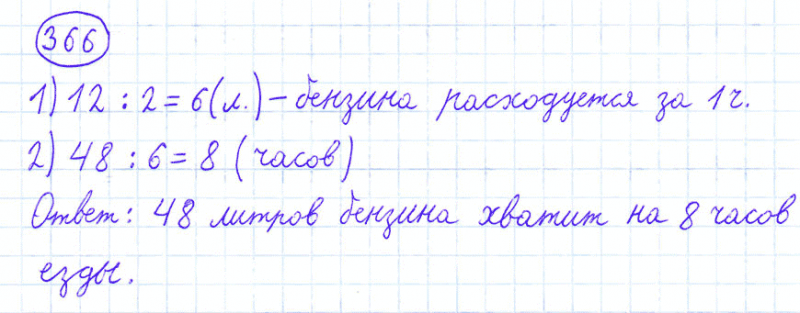 366
1) 12 : 2 = 6 (л.) – бензина расходуется за 1 ч.
2) 48 : 6 = 8 (часов)
Ответ: 48 литров бензина хватит на 8 часов
езды.